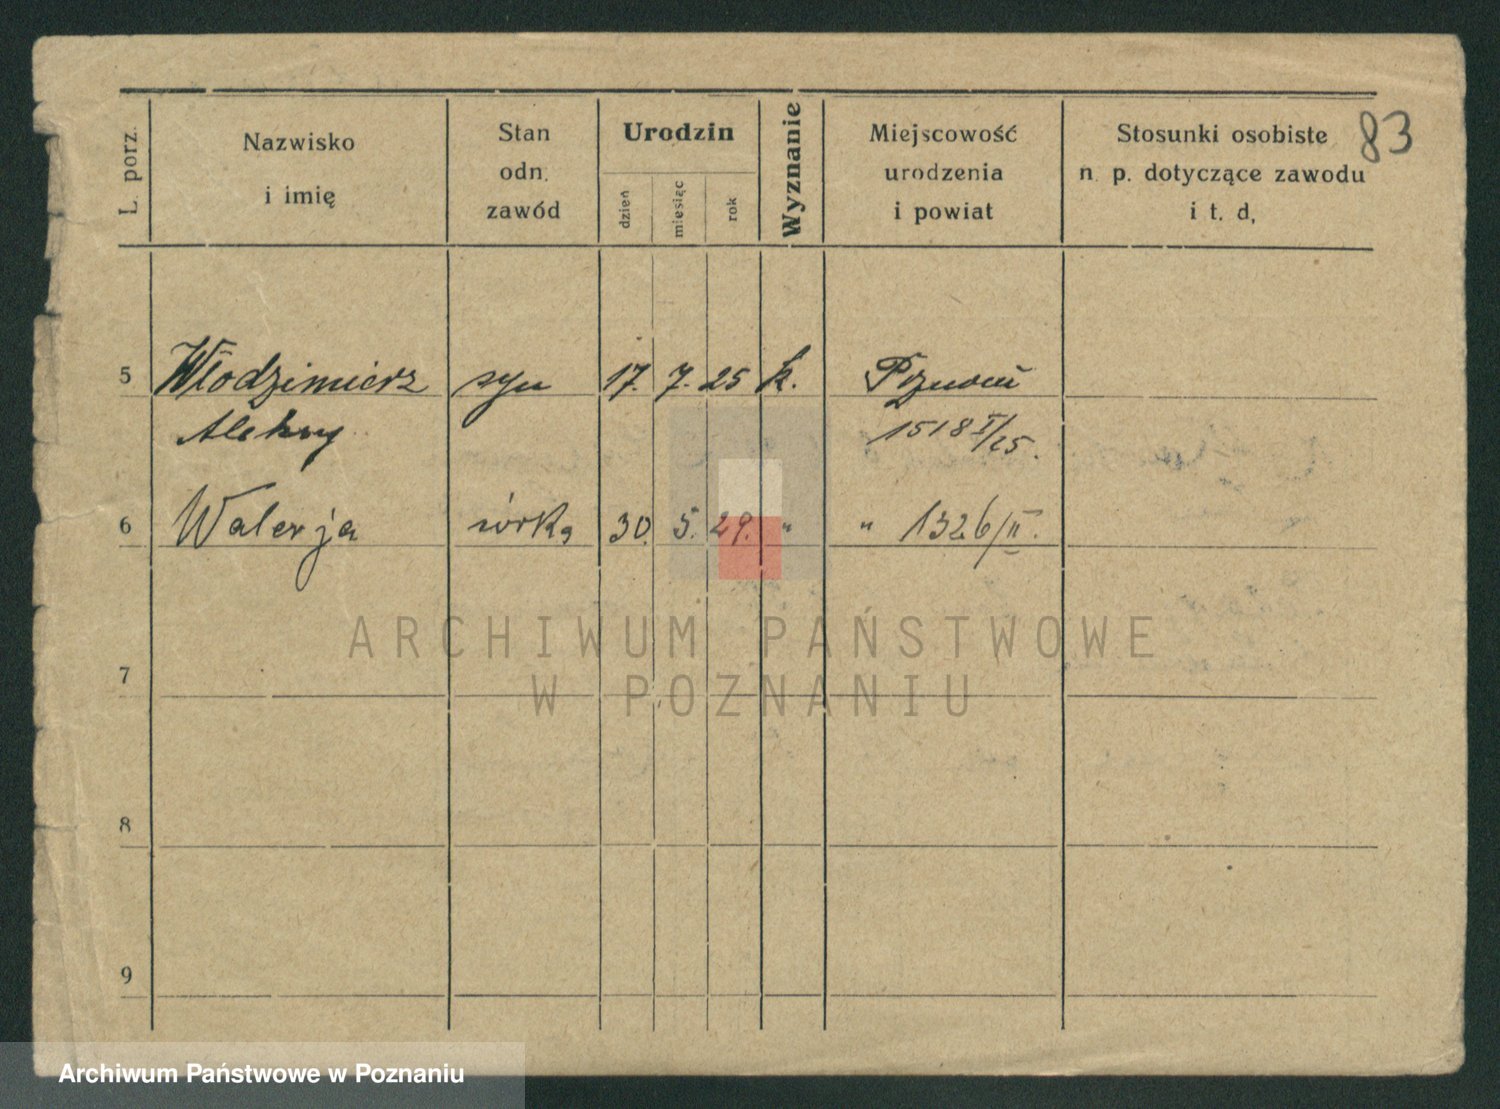 83
L. porz.
Nazwisko
i imię
Stan
odn.
zawód
Urodzin
dzień
miesiąc
rok
Wyznanie
Miejscowość
urodzenia
i powiat
Stosunki osobiste
n. p. dotyczące zawodu
i t. d,
5 Włodzimierz syn 17. 7. 25 k. Poznań
Aleksy 1518 I/25.
6 Walerja córka 30. 5. 29. " " 1326/II.
7
8
9
ARCHIWUM PAŃSTWOWE
W POZNANIU
Archiwum Państwowe w Poznaniu